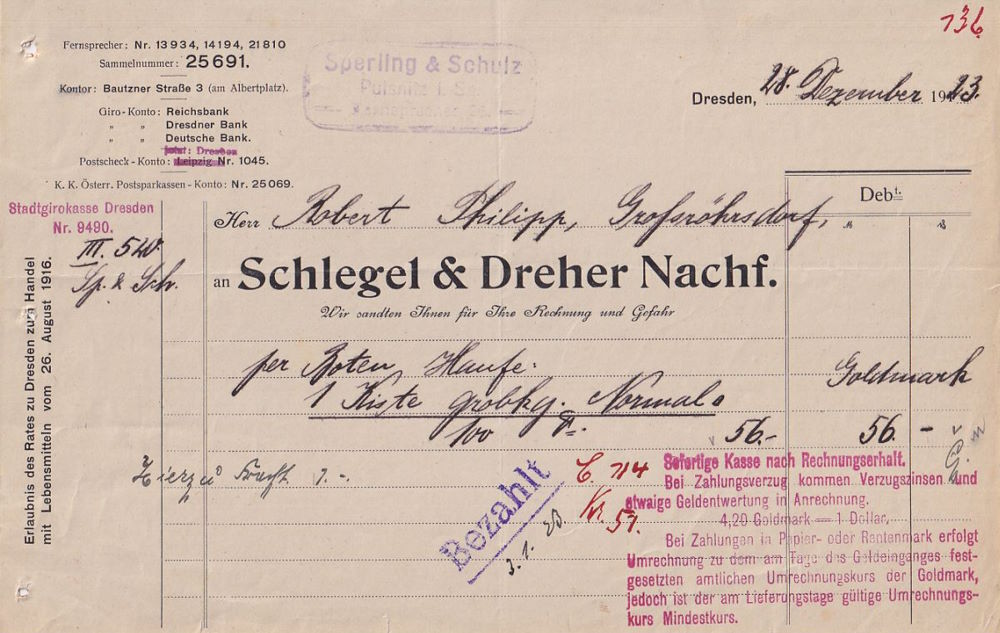 136
Fernsprecher: Nr. 13934, 14194, 21810
Sammelnummer: 25691.
Kontor: Bautzner Straße 3 (am Albertplatz).
Giro-Konto: Reichsbank
" " Dresdner Bank
" " Deutsche Bank.
jetzt: Dresden
Postscheck-Konto: Leipzig Nr. 1045.
K. K. Österr. Postsparkassen-Konto: Nr. 25069.
Sperling & Schulz
Pulsnitz i. Sa.
Dresden, 28. Dezember 1923.
Stadtgirokasse Dresden
Nr. 9490.
III. 540.
Sp. & Sch.
Erlaubnis des Rates zu Dresden zum Handel
mit Lebensmitteln vom 26. August 1916.
Debt.
Herr Robert Philipp, Großröhrsdorf,
an Schlegel & Dreher Nachf.
Wir sandten Ihnen für Ihre Rechnung und Gefahr
per Boten Haufe:
Goldmark
1 Kiste grobkg. Normal
100 56.- 56. -
Hierzu Fracht 1.-
Bezahlt
3.1.
C. 714
Kr. 51.
Sofortige Kasse nach Rechnungserhalt.
Bei Zahlungsverzug kommen Verzugszinsen und
etwaige Geldentwertung in Anrechnung.
4,20 Goldmark = 1 Dollar.
Bei Zahlungen in Papier- oder Rentenmark erfolgt
Umrechnung zu dem am Tage des Geldeinganges fest-
gesetzten amtlichen Umrechnungskurs der Goldmark,
jedoch ist der am Lieferungstage gültige Umrechnungs-
kurs Mindestkurs.